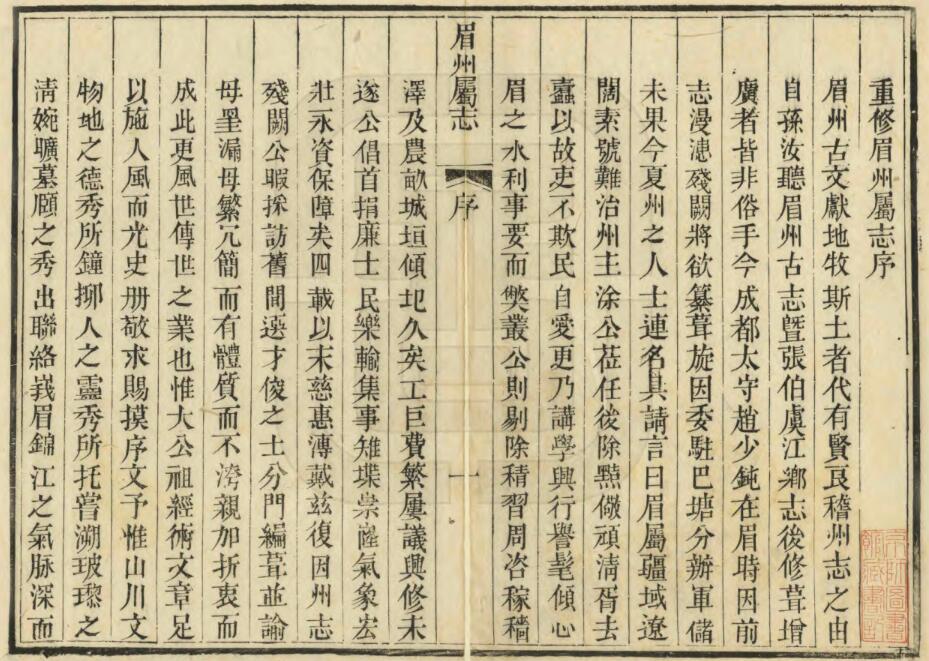 重修眉州屬志序
眉州古文獻地牧斯土者代有賢良稽州志之由
自孫汝聽眉州古志暨張伯虞江鄉志後修葺增
廣者皆非俗手今成都太守趙少鈍在眉時因前
志漫漶殘闕將欲纂葺旋因委駐巴塘分辦軍儲
未果今夏州之人士連名具請言曰眉屬疆域遼
闊素號難治州主涂公莅任後除黠儆頑清胥去
蠹以故吏不欺民自愛更乃講學興行譽髦傾心
眉之水利事要而獘叢公則剔除積習周咨稼穡
眉州屬志
序
一
澤及農畝城垣傾圯久矣工巨費繁屢議興修未
遂公倡首捐廉士民樂輸集事雉堞崇隆氣象宏
壯永資保障矣四載以來慈惠溥戴茲復因州志
殘闕公暇採訪舊聞遴才俊之士分門編葺並諭
毋罣漏毋繁冗簡而有體質而不滂親加折衷而
成此更風世傳世之業也惟大公祖經術文章足
以施人風而光史册敬求賜摸序文予惟山川文
物地之德秀所鐘挪人之靈秀所托嘗溯玻瓈之
清婉曠墓頤之秀出聯絡峩眉錦江之氣脉深而